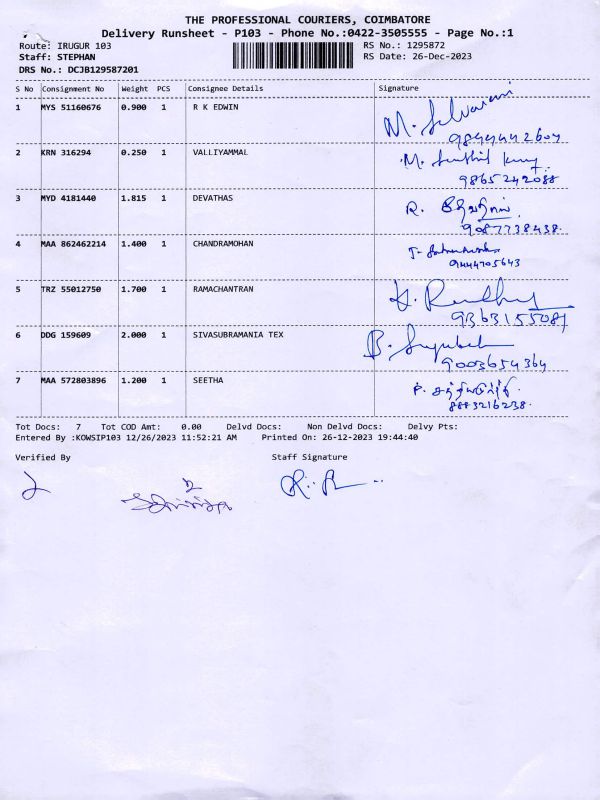 THE PROFESSIONAL COURIERS, COIMBATORE
Delivery Runsheet - P103 - Phone No.:0422-3505555 - Page No.:1
Route: IRUGUR 103 RS No.: 1295872
Staff: STEPHAN RS Date: 26-Dec-2023
DRS No.: DCJB129587201
S No Consignment No Weight PCS Consignee Details Signature
1 MYS 51160676 0.900 1 R K EDWIN M. Selvarani
9844442607
2 KRN 316294 0.250 1 VALLIYAMMAL M. Senthil
9865242088
3 MYD 4181440 1.815 1 DEVATHAS R.
9087738438.
4 MAA 862462214 1.400 1 CHANDRAMOHAN
9444705643
5 TRZ 55012750 1.700 1 RAMACHANTRAN
9363155081
6 DDG 159609 2.000 1 SIVASUBRAMANIA TEX B.
9003654364
7 MAA 572803896 1.200 1 SEETHA
8883216238.
Tot Docs: 7 Tot COD Amt: 0.00 Delvd Docs: Non Delvd Docs: Delvy Pts:
Entered By :KOWSIP103 12/26/2023 11:52:21 AM Printed On: 26-12-2023 19:44:40
Verified By Staff Signature